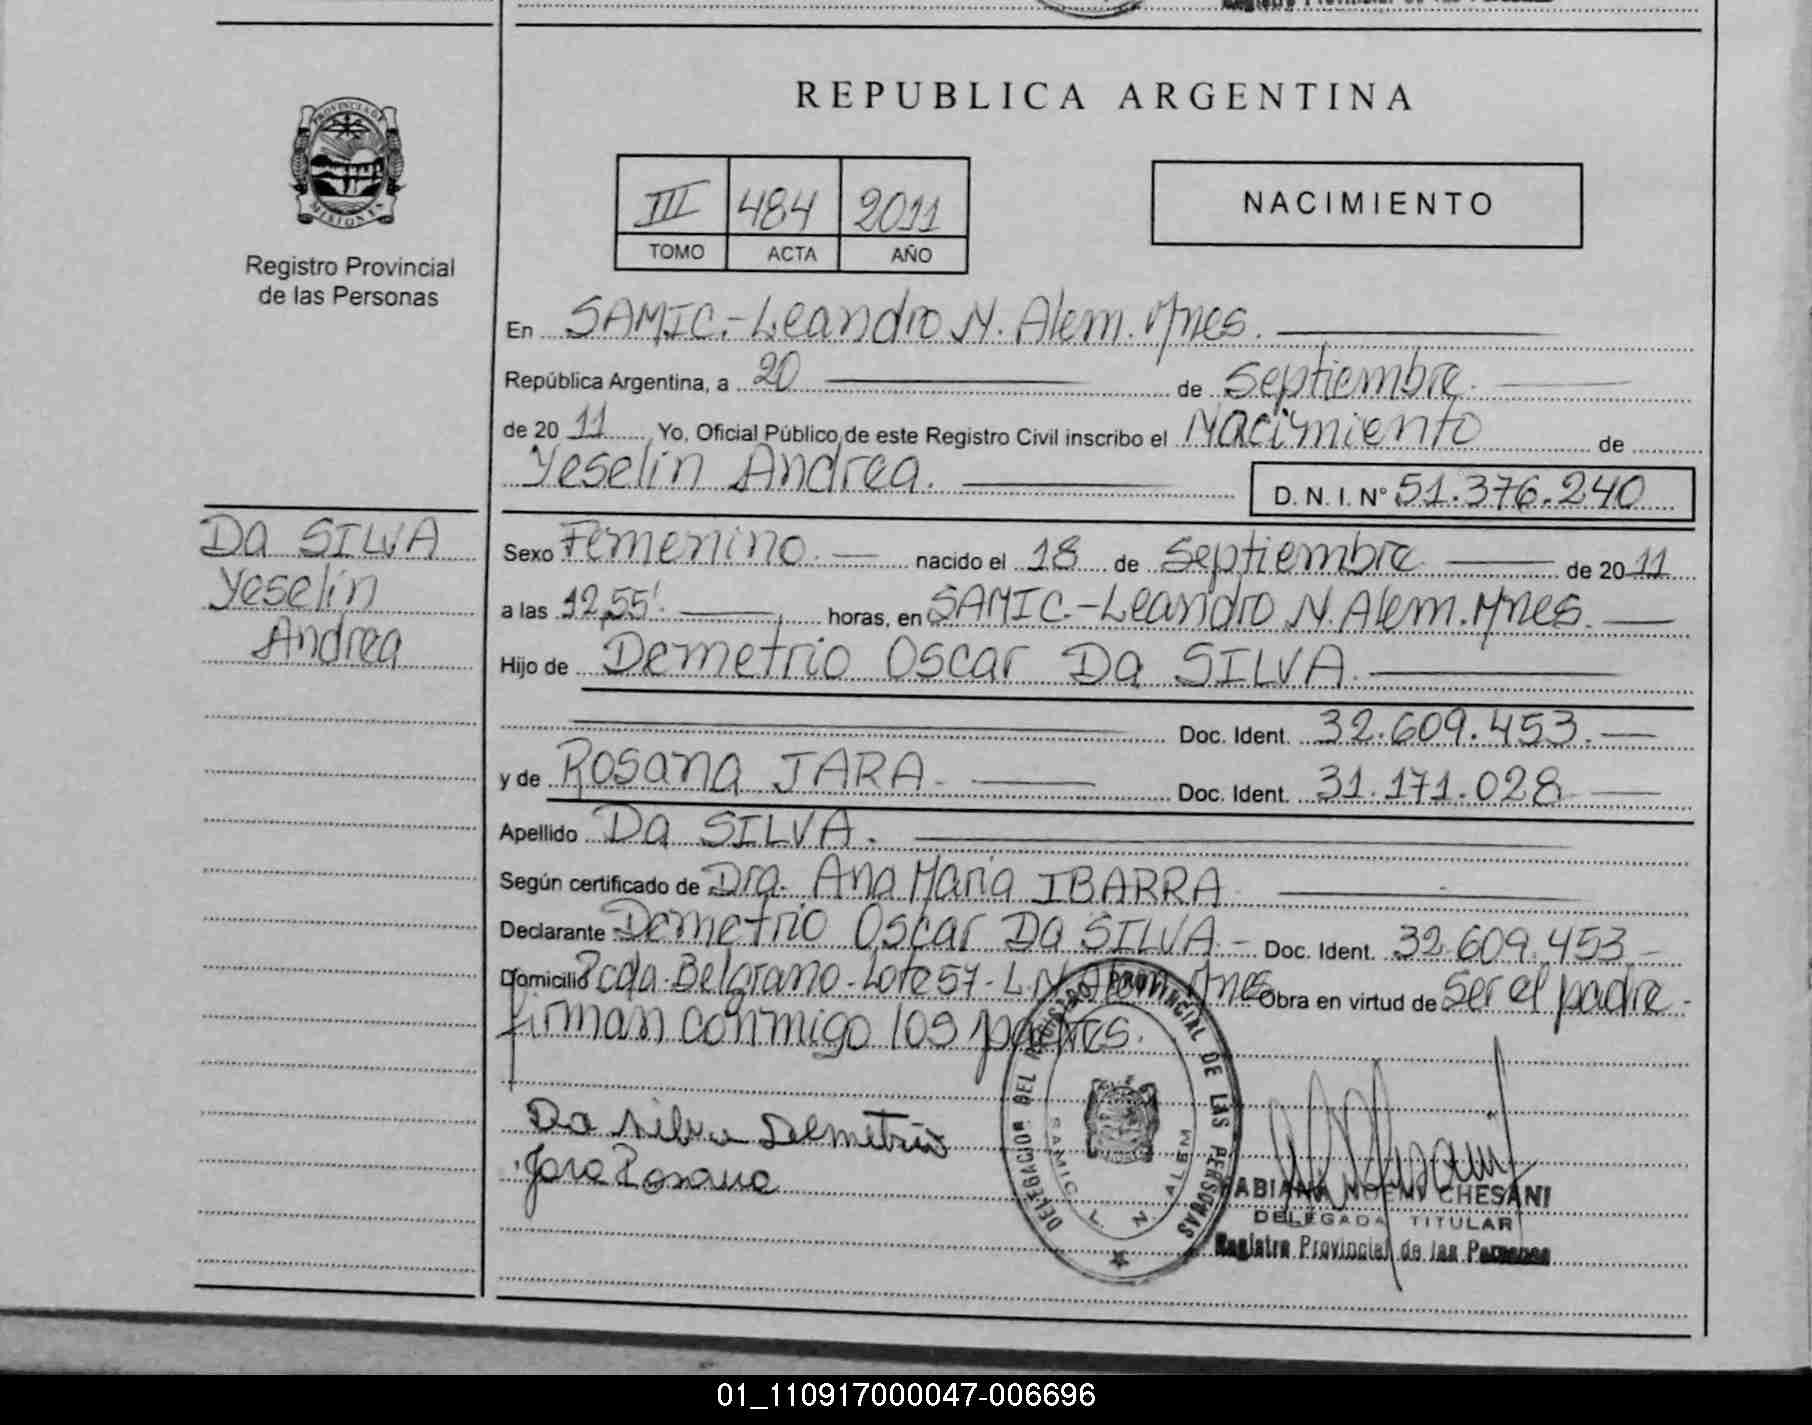 PROVINCIA DE
MISIONES
Registro Provincial
de las Personas
REPUBLICA ARGENTINA
III 484 2011
TOMO ACTA AÑO
NACIMIENTO
En SAMIC.-Leandro N. Alem. Mnes.
República Argentina, a 20 de Septiembre.
de 20 11 Yo, Oficial Público de este Registro Civil inscribo el Nacimiento de
Yeselin Andrea.
D. N. I. N° 51.376.240
DA SILVA
Yeselin
Andrea
Sexo Femenino. nacido el 18 de Septiembre de 20 11
a las 12,55'. horas, en SAMIC.-Leandro N. Alem. Mnes.
Hijo de Demetrio Oscar DA SILVA.
Doc. Ident. 32.609.453.
y de Rosana JARA. Doc. Ident. 31.171.028
Apellido DA SILVA.
Según certificado de Dra. Ana Maria IBARRA
Declarante Demetrio Oscar DA SILVA.- Doc. Ident. 32.609.453-
Domicilio Pcda. Belgrano-Lote 57-L.N. Alem. Mnes. Obra en virtud de Ser el padre.
firman conmigo los padres.
Da Silva Demetrio
Jara Rosana
DELEGACION DEL REGISTRO PROVINCIAL DE LAS PERSONAS
SAMIC L. N. ALEM
FABIANA NOEMI CHESANI
DELEGADA TITULAR
Registro Provincial de las Personas
01_110917000047-006696